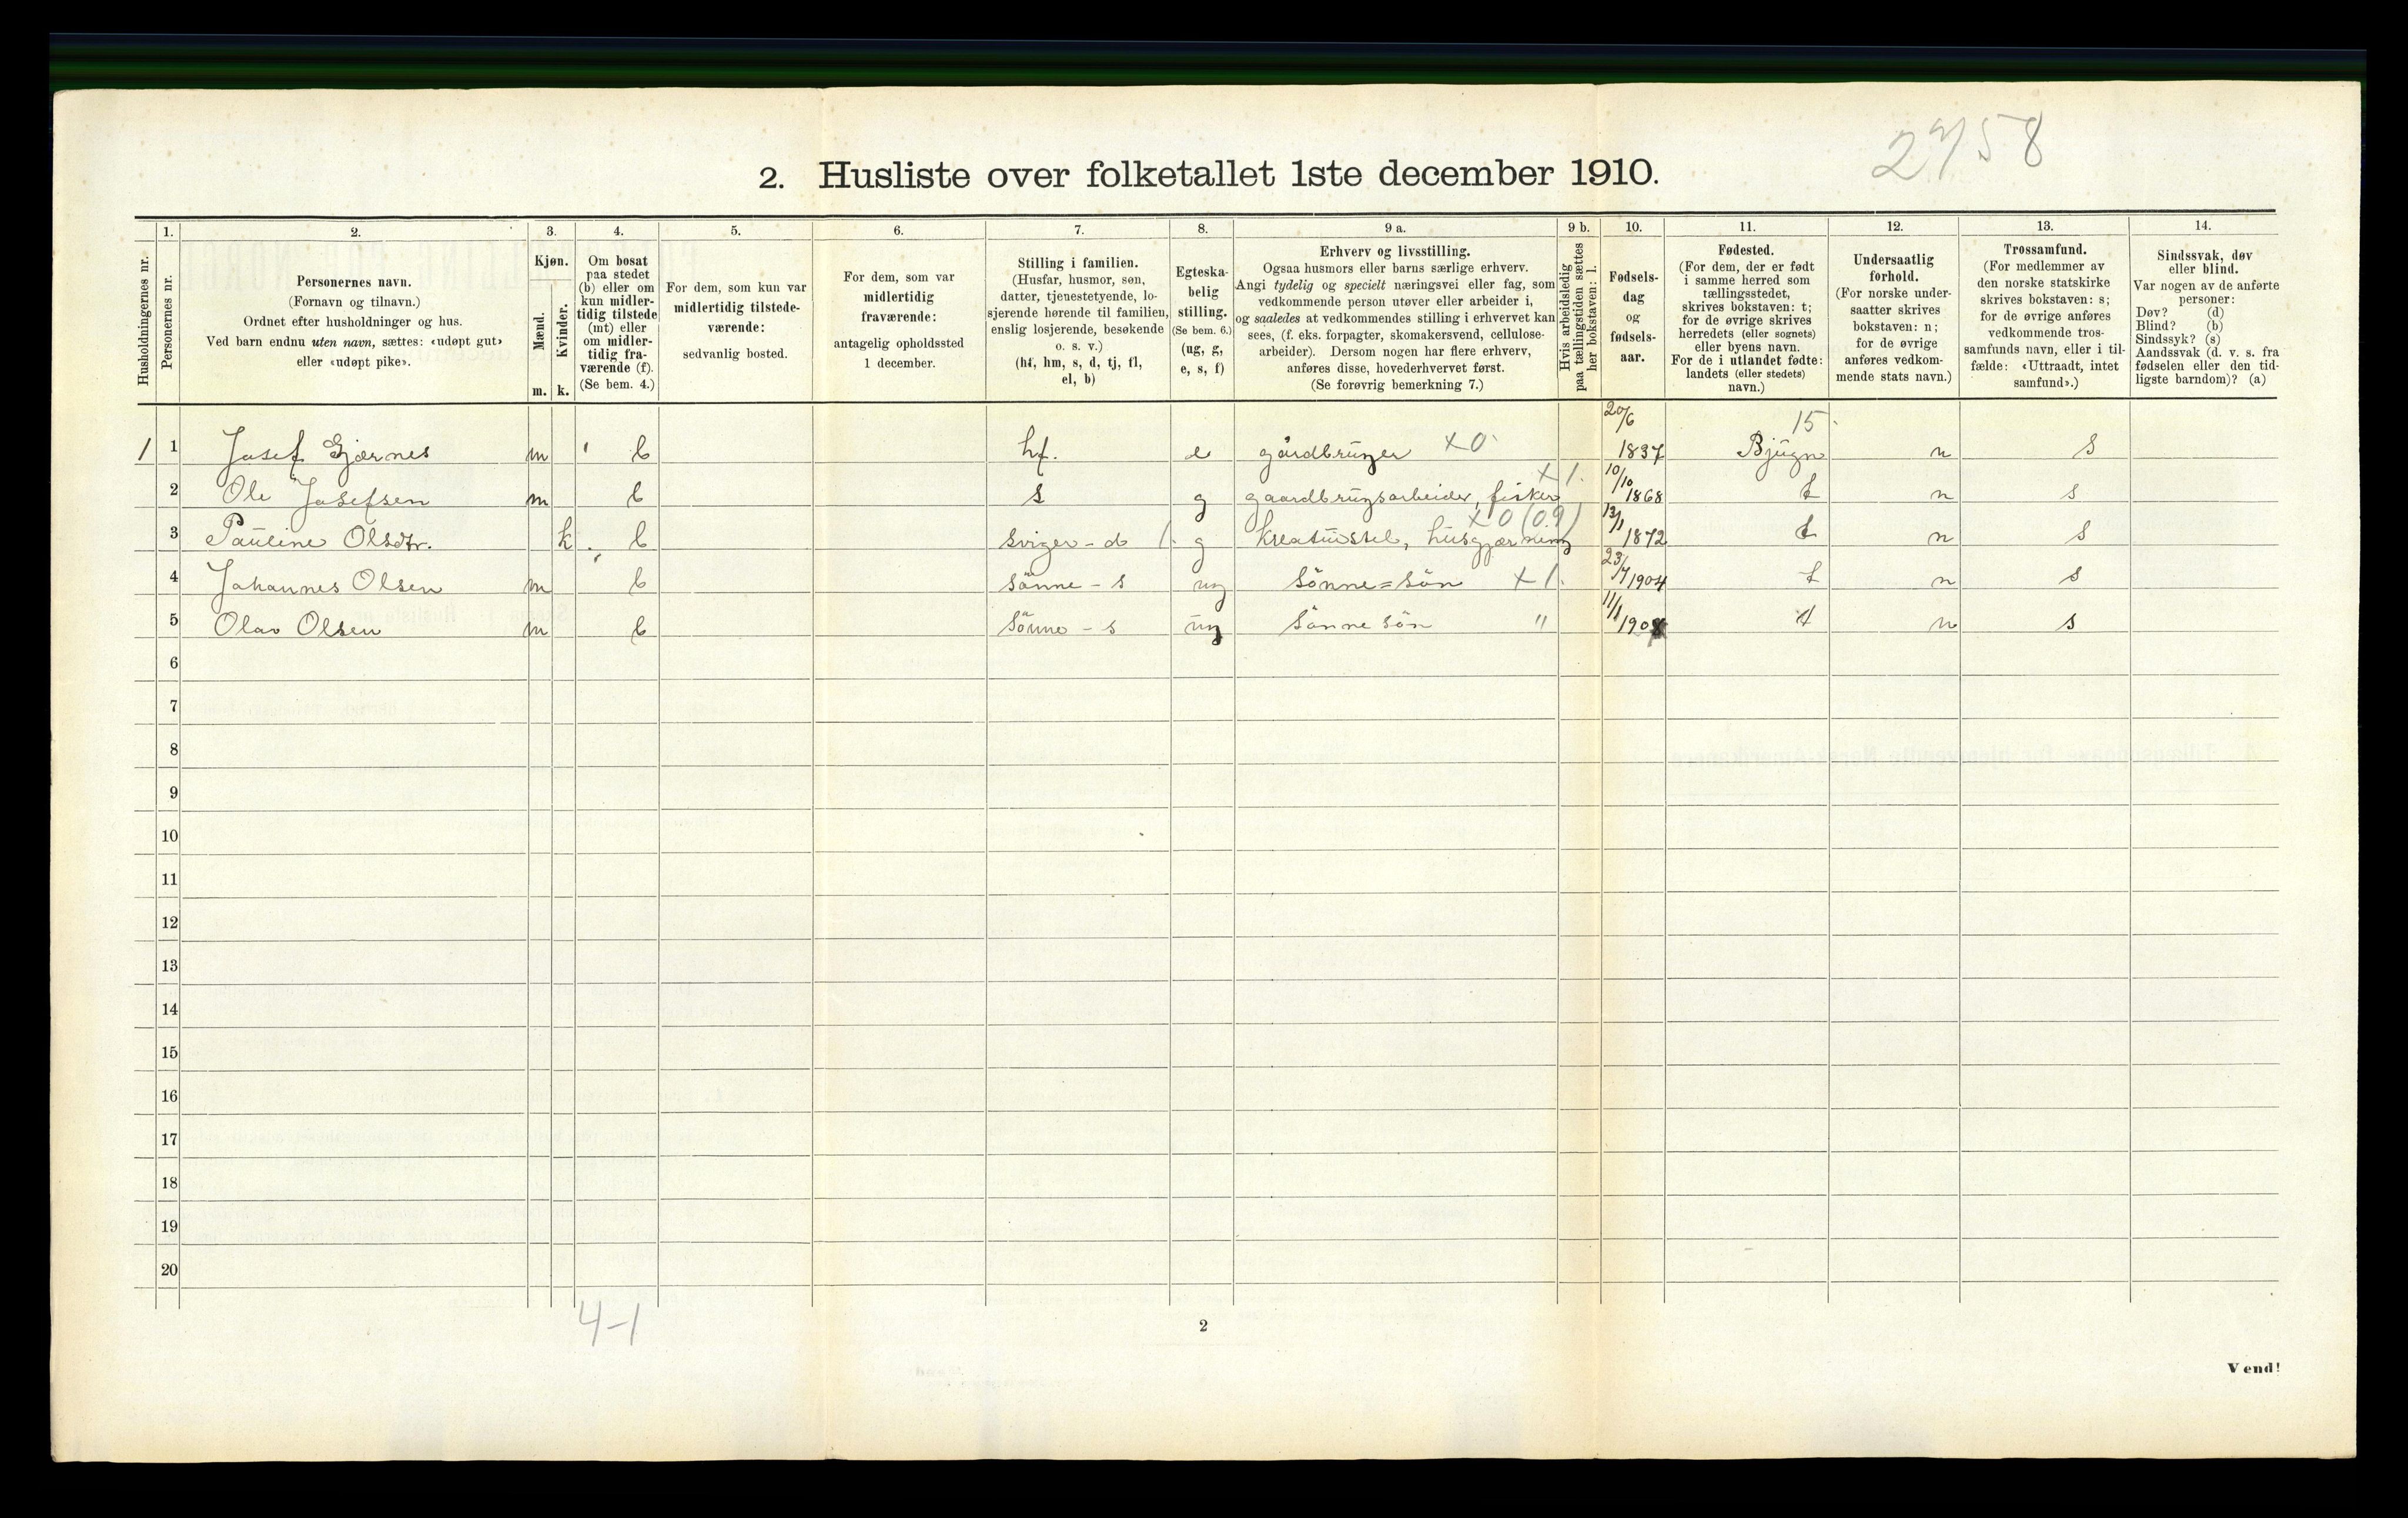 2758
2. Husliste over folketallet 1ste december 1910.
Husholdningernes nr.
1.
Personernes nr.
2.
Personernes navn.
(Fornavn og tilnavn.)
Ordnet efter husholdninger og hus.
Ved barn endnu uten navn, sættes: «udøpt gut»
eller «udøpt pike».
3.
Kjøn.
Mænd.
Kvinder.
m. k.
4.
Om bosat
paa stedet
(b) eller om
kun midler-
tidig tilstede
(mt) eller
om midler-
tidig fra-
værende (f).
(Se bem. 4.)
5.
For dem, som kun var
midlertidig tilstede-
værende:
sedvanlig bosted.
6.
For dem, som var
midlertidig
fraværende:
antagelig opholdssted
1 december.
7.
Stilling i familien.
(Husfar, husmor, søn,
datter, tjenestetyende, lo-
sjerende hørende til familien,
enslig losjerende, besøkende
o. s. v.)
(hf, hm, s, d, tj, fl,
el, b)
8.
Egteska-
belig
stilling.
(Se bem. 6.)
(ug, g,
e, s, f)
9 a.
Erhverv og livsstilling.
Ogsaa husmors eller barns særlige erhverv.
Angi tydelig og specielt næringsvei eller fag, som
vedkommende person utøver eller arbeider i,
og saaledes at vedkommendes stilling i erhvervet kan
sees, (f. eks. forpagter, skomakersvend, cellulose-
arbeider). Dersom nogen har flere erhverv,
anføres disse, hovederhvervet først.
(Se forøvrig bemerkning 7.)
9 b.
Hvis arbeidsledig
paa tællingstiden sættes
her bokstaven: l.
10.
Fødsels-
dag
og
fødsels-
aar.
11.
Fødested.
(For dem, der er født
i samme herred som
tællingsstedet,
skrives bokstaven: t;
for de øvrige skrives
herredets (eller sognets)
eller byens navn.
For de i utlandet fødte:
landets (eller stedets)
navn.)
12.
Undersaatlig
forhold.
(For norske under-
saatter skrives
bokstaven: n;
for de øvrige
anføres vedkom-
mende stats navn.)
13.
Trossamfund.
(For medlemmer av
den norske statskirke
skrives bokstaven: s;
for de øvrige anføres
vedkommende tros-
samfunds navn, eller i til-
fælde: «Uttraadt, intet
samfund».)
14.
Sindssvak, døv
eller blind.
Var nogen av de anførte
personer:
Døv? (d)
Blind? (b)
Sindssyk? (s)
Aandssvak (d. v. s. fra
fødselen eller den tid-
ligste barndom)? (a)
1 1 Josef Gjærnes m b hf. e gårdbruger x0 20/6 1837 15 Bjugn n s
2 Ole Josefsen m b s g gaardbrugsarbeider, fisker x1. 10/10 1868 t n s
3 Pauline Olsdtr. k b sviger-d g Kreaturstel, husgjærning x0 (0.9) 13/1 1872 t n s
4 Johannes Olsen m b sönne-s ug Sönne=sön x1. 23/4 1904 t n s
5 Olav Olsen m b Sönne-s ug Sönne sön " 11/1 190 t n s
6
7
8
9
10
11
12
13
14
15
16
17
18
19
20
4-1
2
Vend!